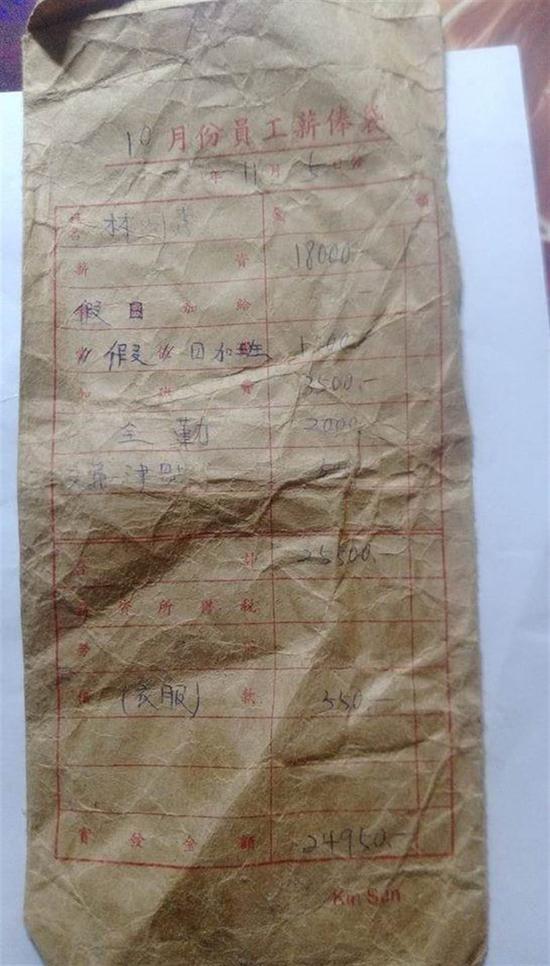 10月份員工薪俸袋
年 11 月 5 日
姓名 林
薪資 18000.-
假日 加給
假 日加班
加班費 3500.-
全勤 2000.
津貼
合計 25500.-
薪資所得稅
勞
借(衣服)款 550.-
實發金額 24950.-
Kin San